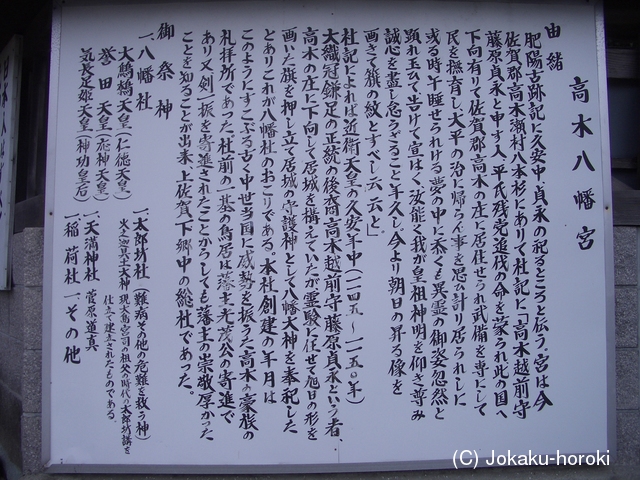 高木八幡宮
由緒
肥陽古跡記に久安中、貞永の祀るところと伝う宮は今
佐賀郡高木瀬村八本杉にありて社記に「高木越前守
藤原貞永と申す人、平氏残党追伐の命を蒙られ此の国へ
下向有りて佐賀郡高木の庄に居住せられ武備を専にして
民を撫育し大平の治に帰らん事を思ひ計り居られしに
或る時午睡せられける夢の中に忝くも異霊の御姿忽然と
顕れ玉ひて告げて宣はく汝能く我が皇祖神明を仰ぎ尊み
誠心を盡し怠らざること年久し今より朝日の昇る像を
画きて旗の紋とすべし云々と」
社記によれば近衛天皇の久安年中(一一四五～一一五〇年)
大織冠鎌足の正統の後裔高木越前守藤原貞永という者、
高木の庄に下向して居城を構えていたが霊験に任せて旭日の形を
画いた旗を押し立て居城の守護神として八幡大神を奉祀した
とありこれが八幡社のおこりである。本社創建の年月は
このようにすこぶる古く中世当国に威勢を振うた高木の豪族の
礼拝所であった。社前の一基の鳥居は藩主光茂公の寄進で
あり又剣一振を寄進されたことからしても藩主の崇敬厚かった
ことを知ることが出来、上佐賀下郷中の総社であった。
御祭神
一、八幡社
大鷦鷯天皇(仁徳天皇)
誉田天皇(応神天皇)
気長足姫天皇(神功皇后)
一、太郎坊社(難病その他の危難を救う神)
火之迦具土大神 現大島宮司の祖父の時代の太郎坊講を
仕立て建立されたものである。
一、天満神社 菅原道真
一、稲荷社 一、その他
(C) Jokaku-horoki